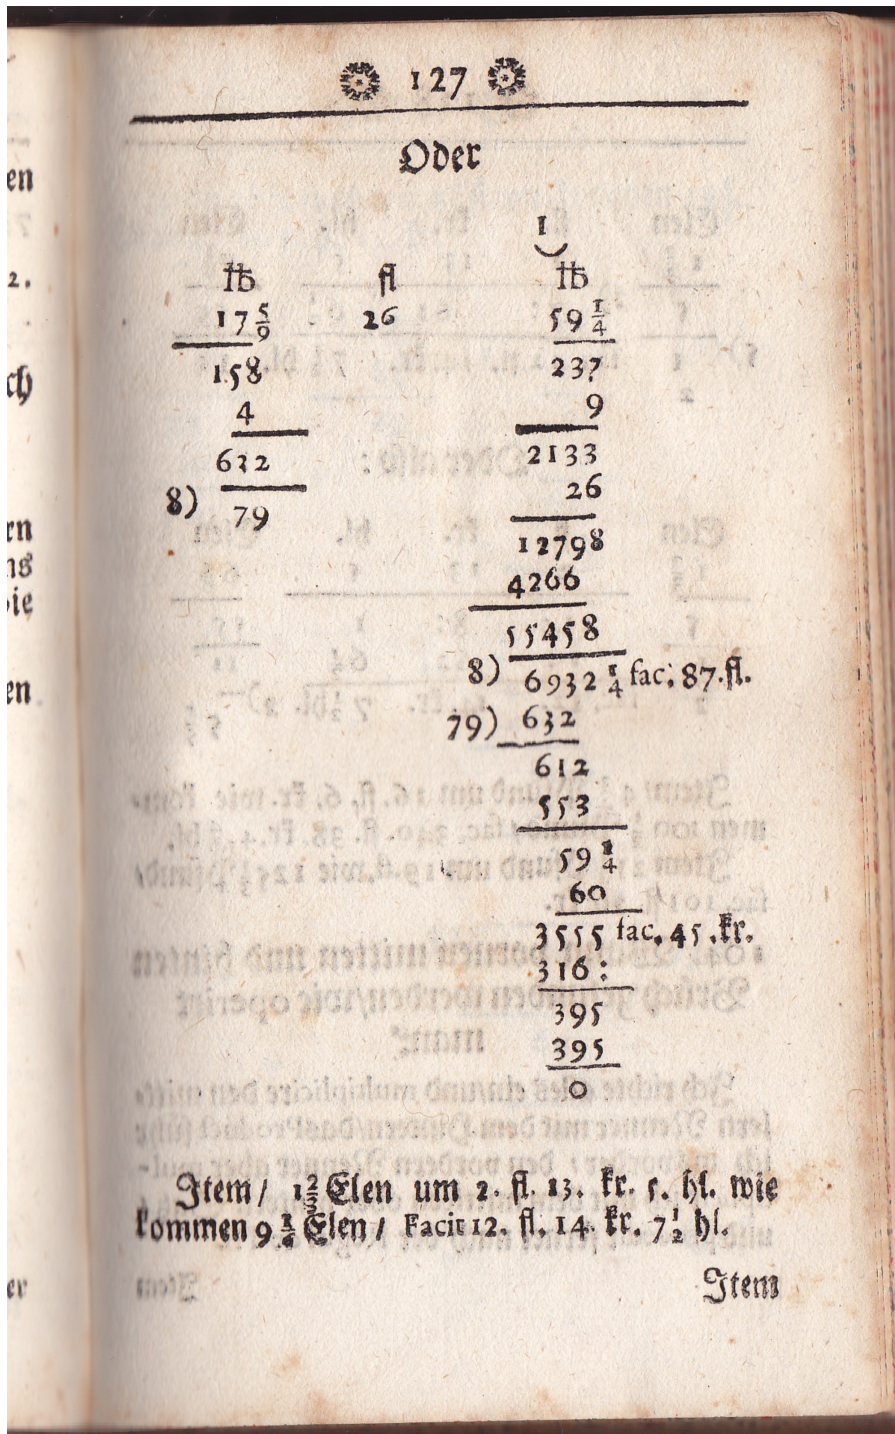 127
Oder
1
℔ fl ℔
17 5/9 26 59 1/4
158 237
4 9
632 2133
8) 79 26
12798
4266
55458
8) 6932 1/4 fac. 87. fl.
79) 632
612
553
59 1/4
60
3555 fac. 45. kr.
316:
395
395
0
Item / 1 2/3 Elen um 2. fl. 13. kr. 5. hl. wie
kommen 9 Elen / Facit 12. fl. 14. kr. 7 1/2 hl.
Item
en
2.
ch
en